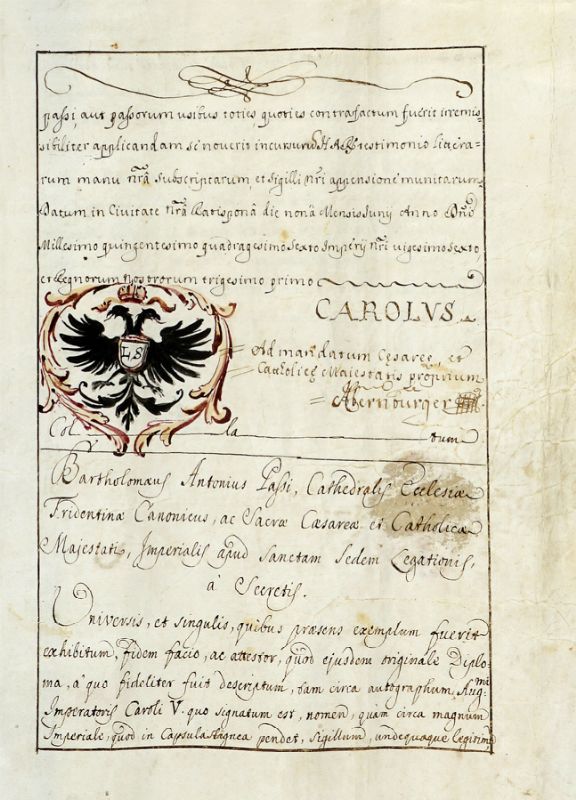 passi, aut passorum usibus toties quoties contrafactum fuerit irremis-
sibiliter applicandam se noverit incursurū HARṼ testimonio littera-
rum manu nr̃a subscriptarum, et sigilli nr̃i appensione munitarum
Datum in Civitate nr̃a Ratispona die nona Mensis Iunij Anno Dn̄i
Millesimo quingentesimo quadragesimo Sexto Imperij nr̃i vigesimo Sexto,
et Regnorum nostrorum trigesimo primo
CAROLVS
LS
Ad mandatum Cesareę, et
Catholicę Maiestatis proprium
Col la tum
Bartholomæus Antonius Passi, Cathedralis Ecclesiæ
Tridentinæ Canonicus, ac Sacræ Cæsareæ et Catholicæ
Majestati, Imperialis apud Sanctam Sedem Legationis,
a' Secretis.
Universis, et singulis, quibus præsens exemplum fuerit
exhibitum, fidem facio, ac attestor, quòd ejusdem originale Diplo-
ma, a' quo fideliter fuit descriptum, tam circa autographum Aug:mi
Imperatoris Caroli V. quo signatum est, nomen, quàm circa magnum
Imperiale, quod in Capsula lignea pendet, sigillum, undequaque legitim